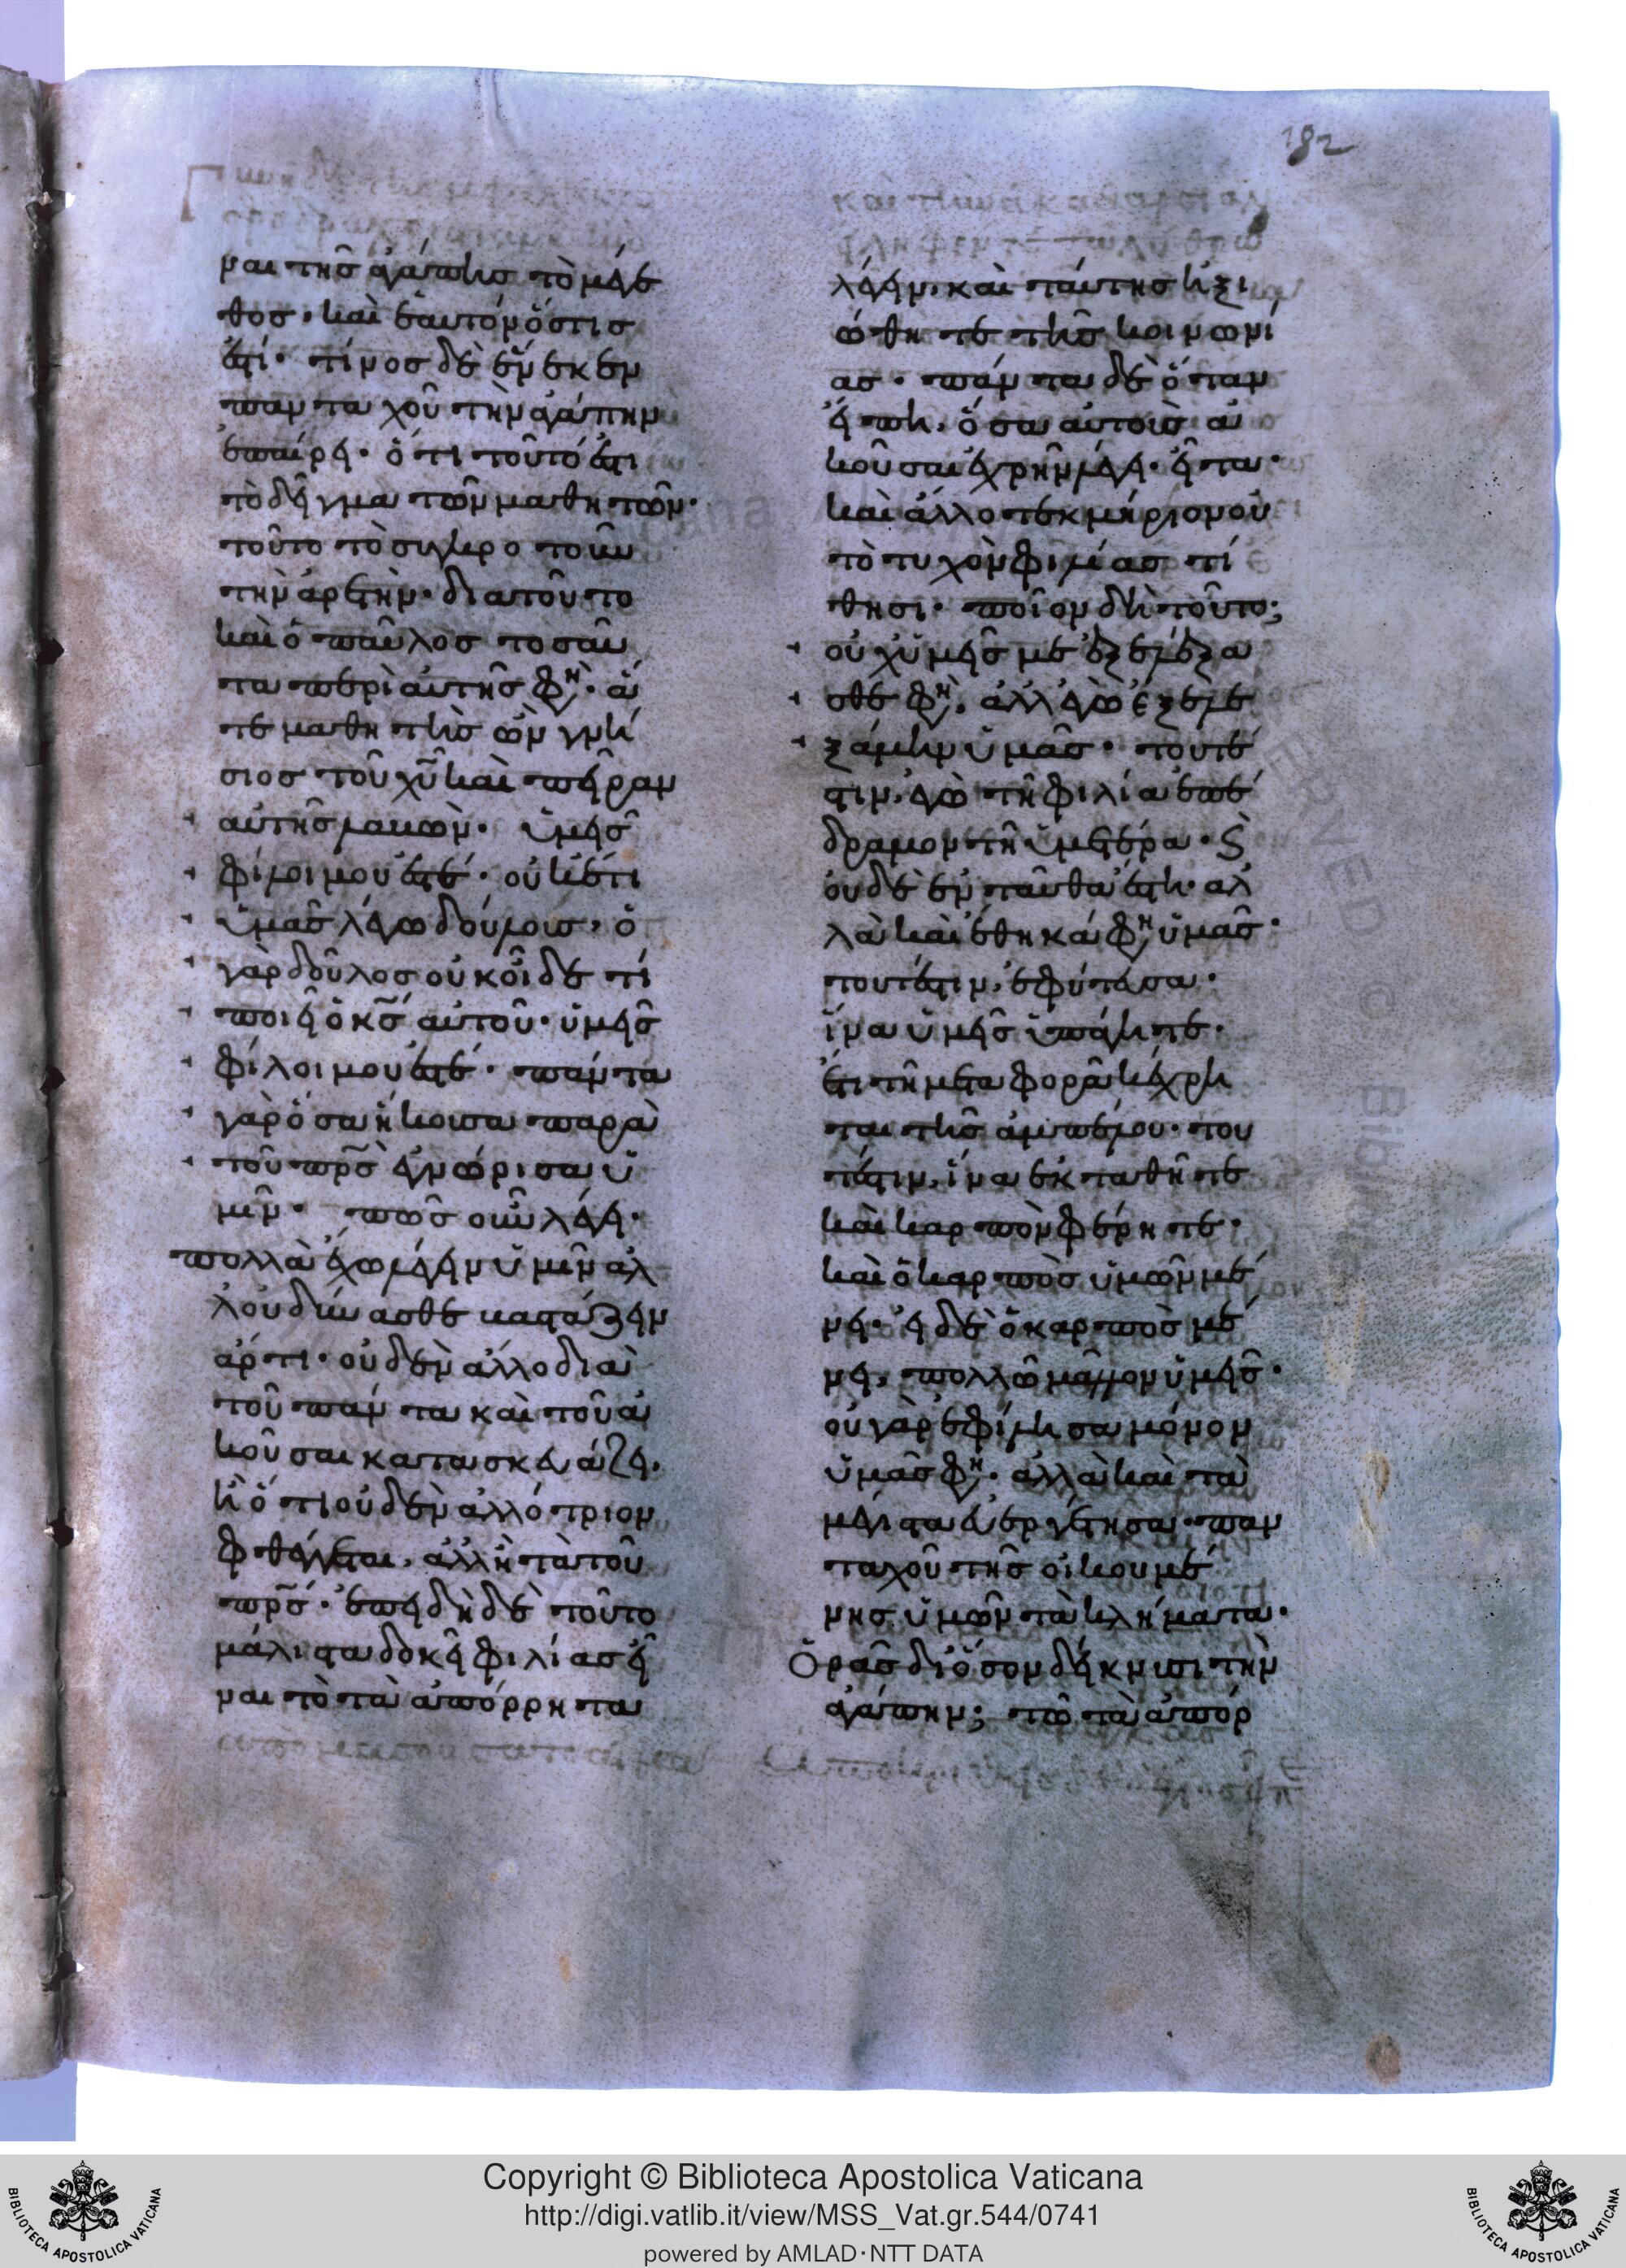 182
ναι τῆς ἀγάπης τὸ μέγε
θος· καὶ ἑαυτὸν ὅστις
ἐστί· τίνος δὲ ἕνεκεν
πανταχοῦ τὴν ἀγάπην
ἐπαίρει· ὅτι τοῦτό ἐστι
τὸ δεῖγμα τῶν μαθητῶν·
τοῦτο τὸ συγκροτοῦν
τὴν ἀρετήν· διατοῦτο
καὶ ὁ παῦλος τοσαῦ
τα περὶ αὐτῆς φη· ἅ
τε μαθητὴς ὢν γνή
σιος τοῦ χυ καὶ πεῖραν
αὐτῆς λαβὼν· ὑμεῖς
φίλοι μου ἐστέ· οὐκέτι
ὑμᾶς λέγω δούλους, ὁ
γὰρ δοῦλος οὐκ οἶδε τί
ποιεῖ ὁ κς αὐτοῦ· ὑμεῖς
φίλοι μου ἐστέ· πάντα
γὰρ ὅσα ἤκουσα παρὰ
τοῦ πρς ἐγνώρισα ὑ
μῖν· πῶς οὖν λέγει·
πολλὰ ἔχω λέγειν ὑμῖν ἀλ
λ' οὐ δύνασθε βαστάζειν
ἄρτι· οὐδὲν ἄλλο διὰ
τοῦ πάντα καὶ τοῦ ἀ
κοῦσαι κατασκευάζει·
ἢ ὅτι οὐδὲν ἀλλότριον
φθέγγεται, ἀλλ' ἢ τὰ τοῦ
πρς· ἐπειδὴ δὲ τοῦτο
μάλιστα δοκεῖ φιλίας εἶ
ναι τὸ τὰ ἀπόρρητα
λέγειν, καὶ ταύτης ἠξι
ώθητε τῆς κοινωνί
ας· πάντα δὲ ὅταν
εἴπη, ὅσα αὐτοὺς ἀ
κοῦσαι ἐχρῆν λέγει· εἶτα·
καὶ ἄλλο τεκμήριον οὐ
τὸ τυχὸν φιλίας τί
θησι· ποῖον δὴ τοῦτο;
οὐχ ὑμεῖς με ἐξελέξα
σθέ φη, ἀλλ' ἐγὼ ἐξελε
ξάμην ὑμᾶς· τουτέ
στιν, ἐγὼ τῆ φιλία ἐπέ
δραμον τῆ ὑμετέρα· καὶ
οὐδὲ ἐνταῦθα ἔστη· ἀλ
λὰ καὶ ἔθηκά φη ὑμᾶς·
τουτέστιν, ἐφύτευσα·
ἵνα ὑμεῖς ὑπάγητε·
ἔτι τῆ μεταφορᾶ κέχρη
ται τῆς ἀμπέλου· του
τέστιν, ἵνα ἐκταθῆτε
καὶ καρπὸν φέρητε·
καὶ ὁ καρπὸς ὑμῶν μέ
νει· εἰ δὲ ὁ καρπὸς μέ
νει, πολλῶ μᾶλλον ὑμεῖς·
οὐ γὰρ ἐφίλησα μόνον
ὑμᾶς φη· ἀλλὰ καὶ τὰ
μέγιστα εὐεργέτησα παν
ταχοῦ τῆς οἰκουμέ
νης ὑμῶν τὰ κλήματα·
Ὁρᾶς δι' ὅσων δείκνυσι τὴν
ἀγάπην; τῶ τὰ ἀπόρ
Copyright © Biblioteca Apostolica Vaticana
http://digi.vatlib.it/view/MSS_Vat.gr.544/0741
powered by AMLAD·NTT DATA
BIBLIOTECA APOSTOLICA VATICANA
BIBLIOTECA APOSTOLICA VATICANA